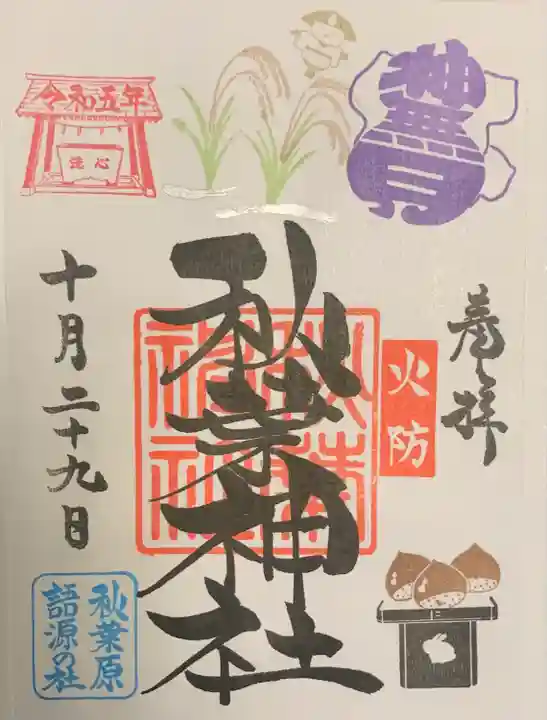 奉拝
神無月
火防
秋葉神社
秋葉神社
令和五年
洗心
十月二十九日
秋葉原
語源の社